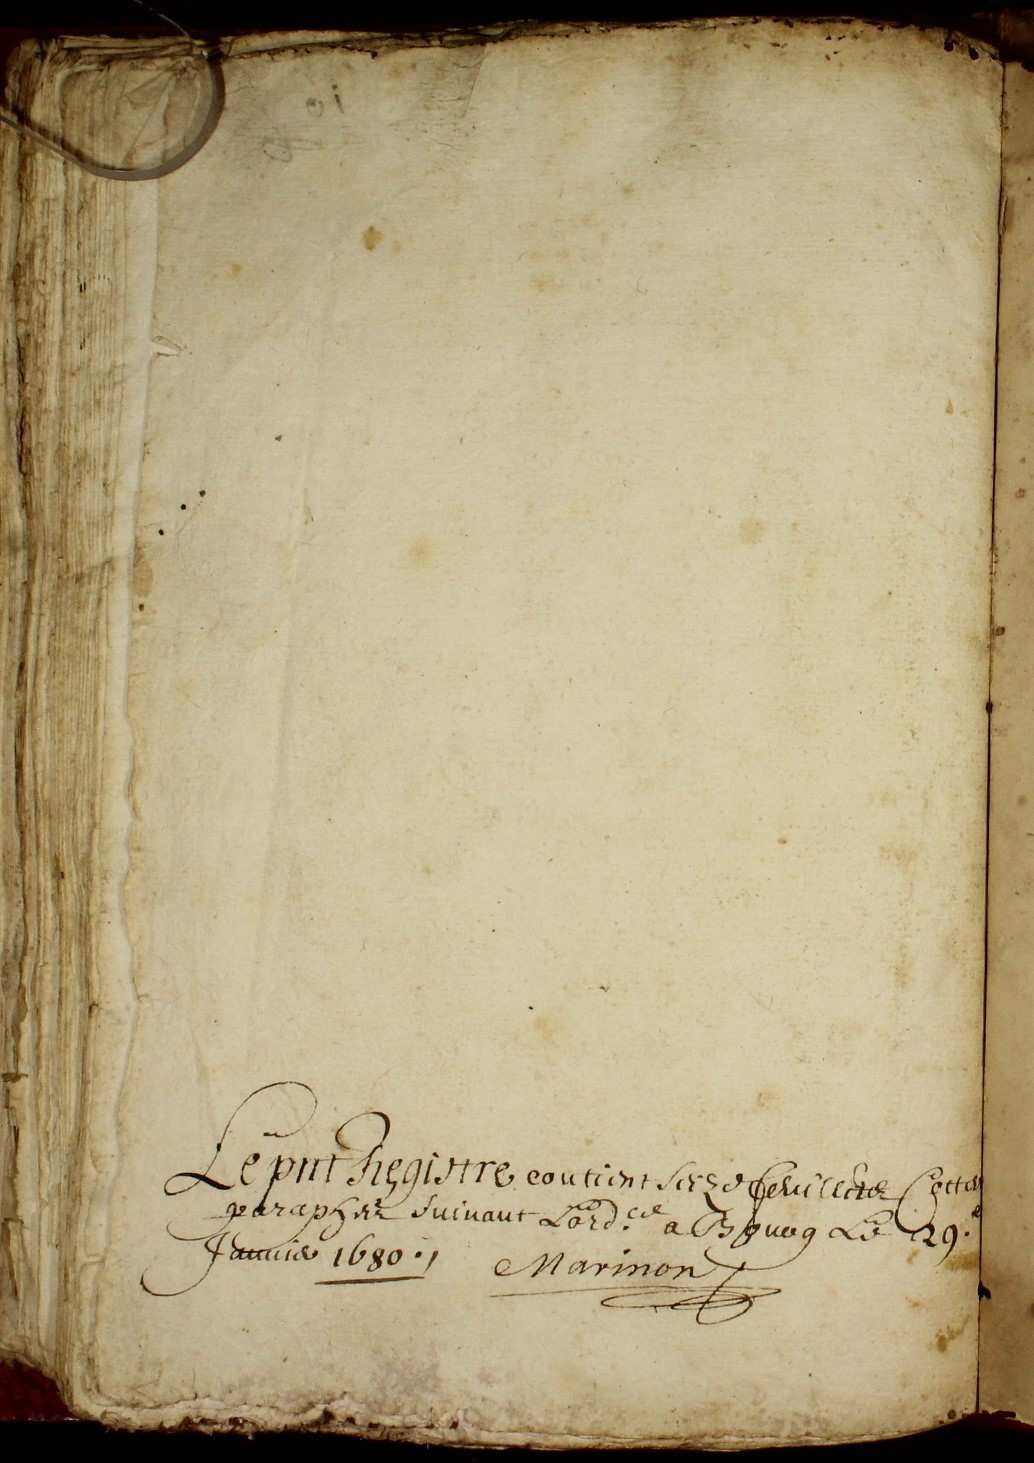 Le pnt Registre contient seize feuillets Cottés
paraphés suivant L'ord.ce a Bourg Le 29.e
Janvier 1680 . /
Marinon